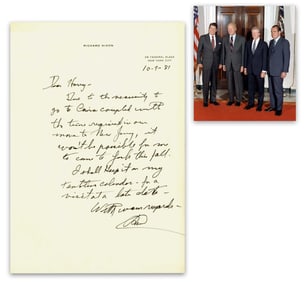 RICHARD NIXON
26 FEDERAL PLAZA
NEW YORK CITY
10-9-81
Dear Henry -
Due to the necessity to
go to Cairo coupled with
the time required in our
move to New Jersey, it
won't be possible for me
to come to                 this fall.
I shall keep it on my
tentative calendar - for a
visit at a later date -
With warm regards -